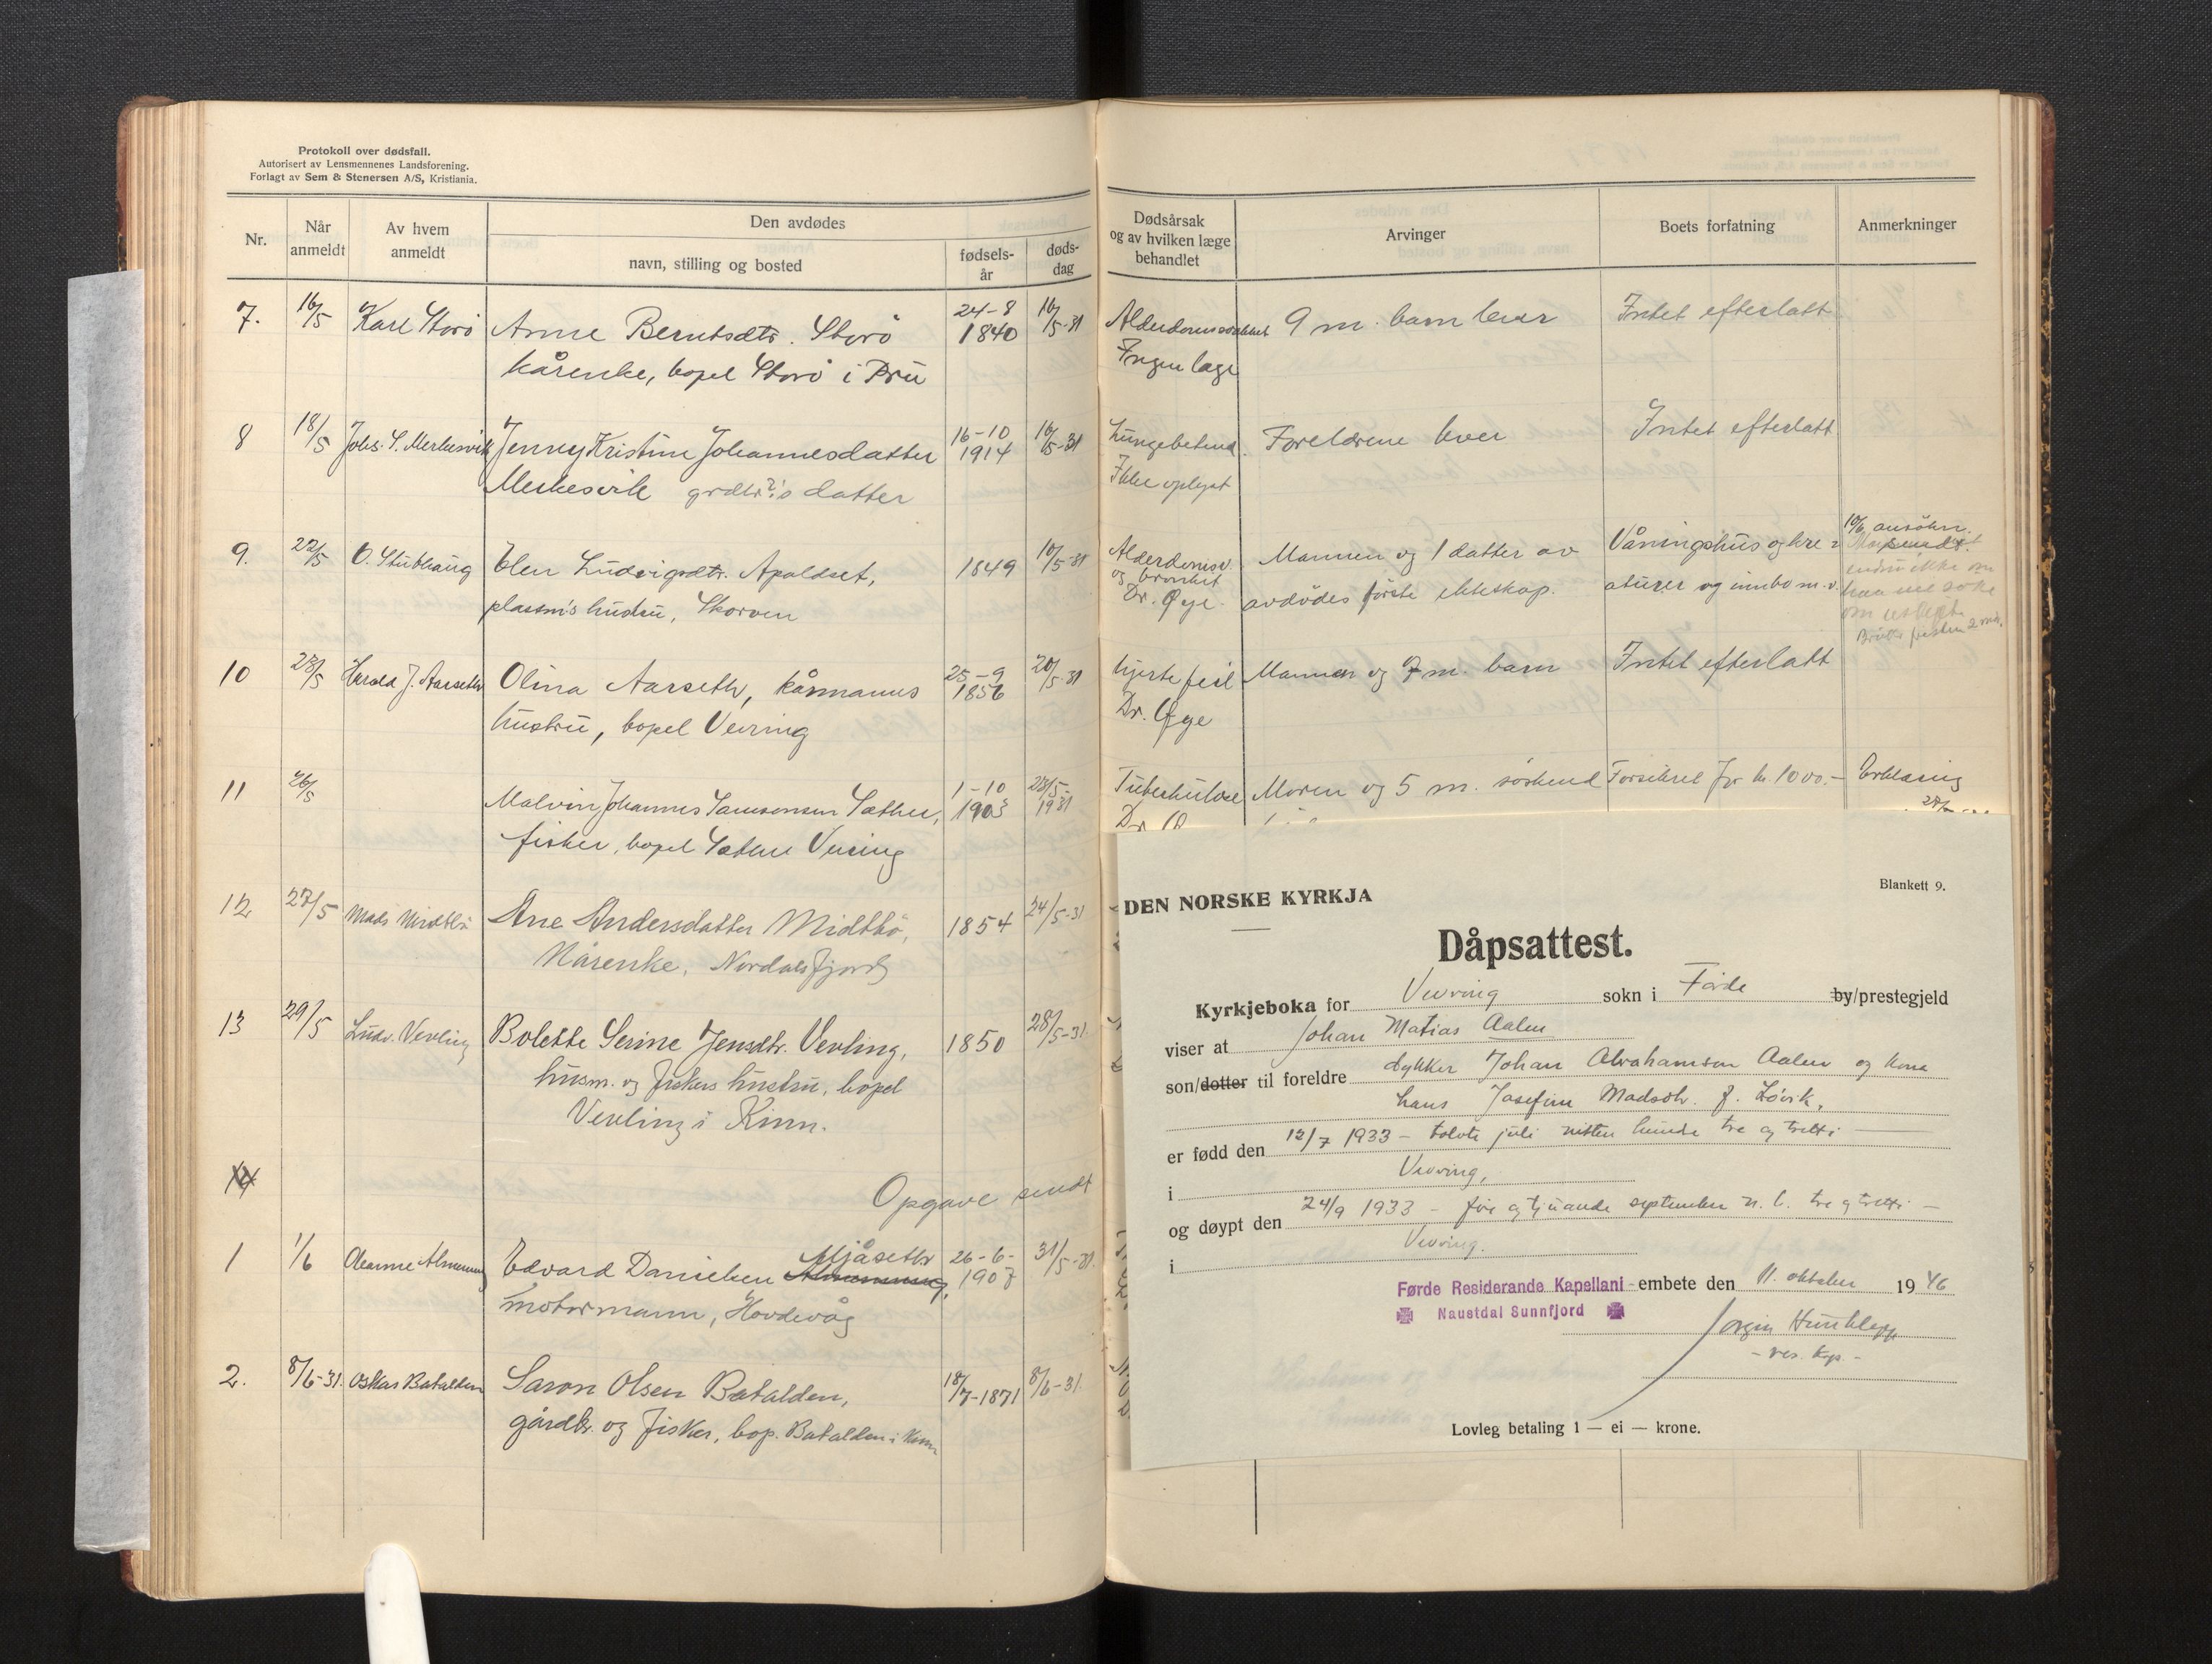 Protokoll over dødsfall.
Autorisert av Lensmennenes Landsforening.
Forlagt av Sem & Stenersen A/S, Kristiania.
Nr.
Når anmeldt
Av hvem anmeldt
Den avdødes
navn, stilling og bosted
fødsels-år
døds-dag
Dødsårsak og av hvilken læge behandlet
Arvinger
Boets forfatning
Anmerkninger
7. 16/5 Karl Storø Anne Berntsdtr. Storø 24-8 1840 16/5-31 9 m. barn lever Intet efterlatt
kårenke, bopel Storø i Bru Ingen læge
8 18/5 Johs. S. Merkesvik Jenny Kristine Johannesdatter 16-10 1914 16/5-31 Lungebetend. Foreldrene lever Intet efterlatt
Merkesvik grdbr's datter Ikke oplyst
9. 22/5 O. Stubhaug Elen Ludvigsdtr. Apaldset, 1849 10/5-31 Alderdomssv. og bronkit Mannen og 1 datter av Våningshus og kre-
plassm's hustru, Skorven Dr. Øye avdødes første ekteskap. aturer og innbo m.v.
10 23/5 Harald J. Aarseth Olina Aarseth, kårmanns 25-9 1856 20/5-31 Hjertefeil Mannen og 7 m. barn Intet efterlatt
hustru, bopel Vevring Dr. Øye
11 26/5 Malvin Johannes Samsonsen Sæther, 1-10 1903 23/5-1931 Tuberkulose Moren og 5 m. søskend Forsikret for kr. 1000.- Erklæring
fisker, bopel Sæther Vevring Dr.
12 27/5 Mads Midtbø Ane Andersdatter Midtbø, 1854 24/5-31
Kårenke, Nordalsfjord
13 29/5 Ludv. Vevling Bolette Serine Jensdtr. Vevling, 1850 28/5-31.
husm. og fiskers hustru, bopel
Vevling i Kinn.
14
Opgave sendt
1 1/6 Oleanne Almenning Edvard Danielsen Almenning, Mjåseth 26-6-1907 31/5-31.
motormann, Hovdevåg
2. 8/6-31. Oskar Batalden Saron Olsen Batalden, 18/7-1871 8/6-31.
gårdbr. og fisker, bop. Batalden i Kinn
Blankett 9.
DEN NORSKE KYRKJA
Dåpsattest.
Kyrkjeboka for Vevring sokn i Førde by/prestegjeld
viser at Johan Matias Aalen
son/dotter til foreldre dykker Johan Abrahamsen Aalen og kona
hans Josefine Madsdtr. f. Løvik.
er fødd den 12/7 1933 - tolvte juli nitten hundre tre og tretti
i Vevring,
og døypt den 24/9 1933 - fire og tjuande september n. h. tre og tretti -
i Vevring.
Førde Residerande Kapellani - embete den 11. oktober 1946
Naustdal Sunnfjord
- res. kap. -
Lovleg betaling 1 — ei — krone.